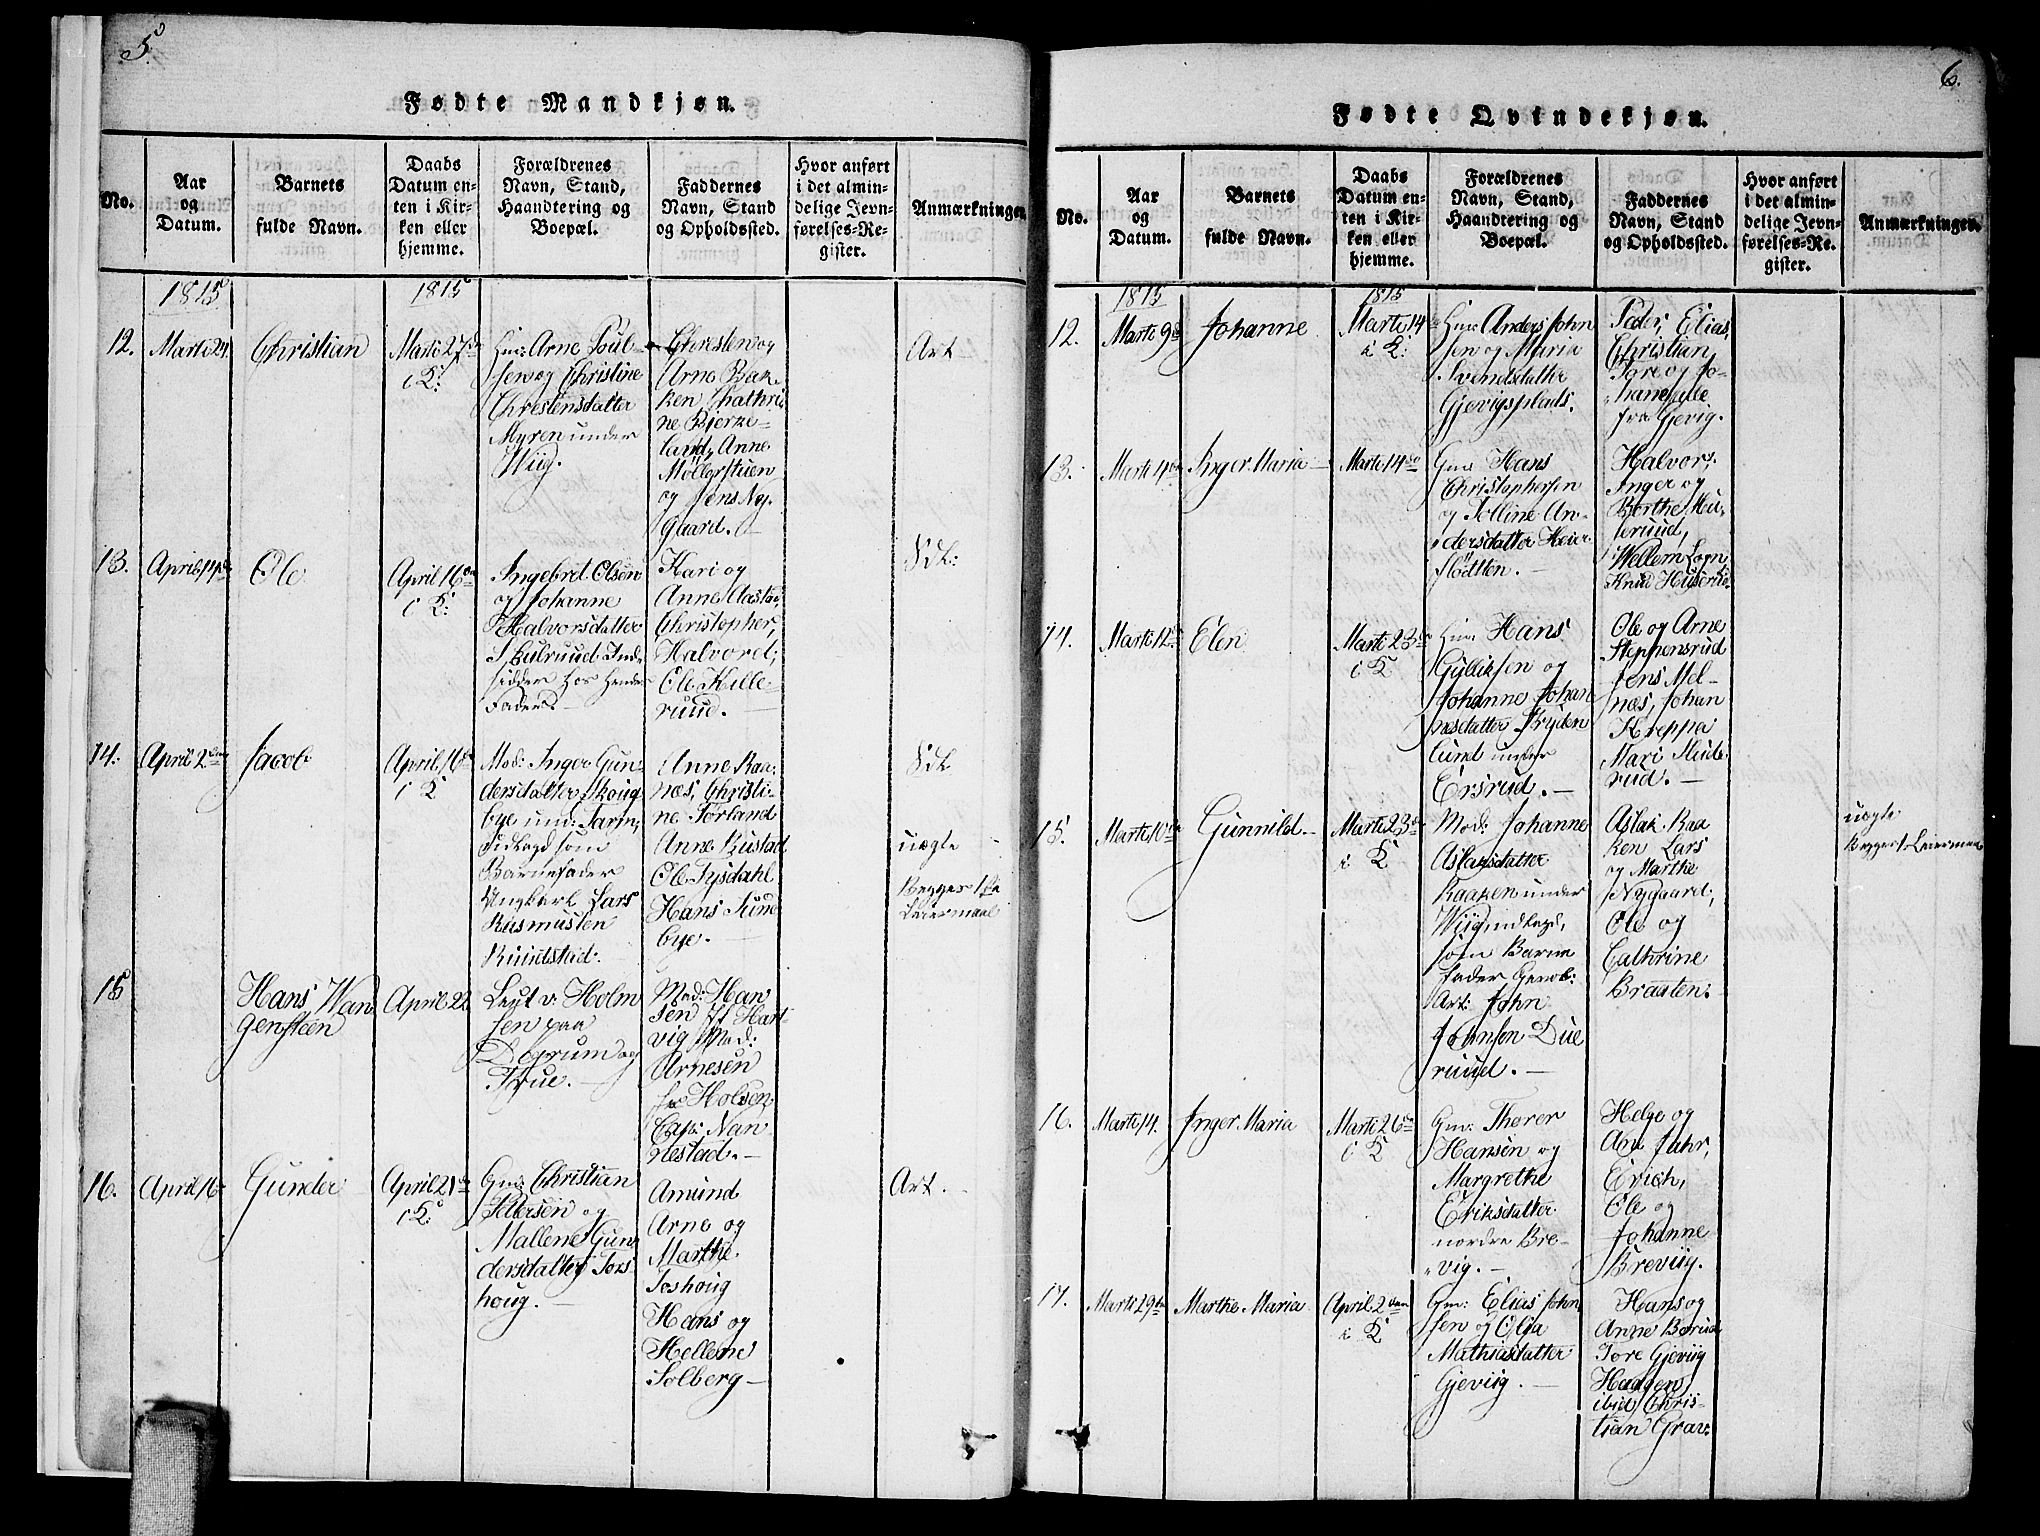 5.
Fødte Mandkjøn.
No.
Aar
og
Datum.
Barnets
fulde Navn.
Daabs
Datum en-
ten i Kir-
ken eller
hjemme.
Forældrenes
Navn, Stand,
Haandtering og
Boepæl.
Faddernes
Navn, Stand
og Opholdssted.
Hvor anført
i det almin-
delige Jevn-
førelses-Re-
gister.
Anmærkninger.
1815
1815
12.
Marti 24
Christian
Marti 27de
i K:
Gm: Arne Poul-
sen og Christine
Christensdatter
Myren under
Wiig.
Christen og
Arne Bak-
ken Chathri-
ne Bjerke-
land, Anne
Møllerstuen
og Jens Ny-
gaard.
Art
13.
April 14de
Ole
April 16de
i K:
Ingebret Olsen
og Johanne
Halvorsdatter
Skulruud Ind-
sidder hos hendes
Fader.
Kari og
Anne Aastad,
Christopher,
Halvored,
Ole Kille-
ruud.
Sdk:
14.
April 2den
Jacob
April 16de
i K
Mod: Inger Gun-
dersdatter Skoug-
bye und: Tarm,
Udlagd som
Barnefader
Ungkarl Lars
Rasmussen
Rundstad.
Anne Raa-
næs, Christi-
ne Førland
Anne Rustad
Ole Tysdahl
Hans Sund-
bye.
Sdk
uægte
Begges 1ste
Leiermaal
15
Hans Wan-
gensteen
April 22
Leut v: Holm-
sen paa
og
Frue.
Mad: Han-
sen Hart-
vig Mad:
Arnesen
Holsen
Capt: Nan-
nestad.
16.
April 16
Gunder
April 21de
i K:
Gm: Christian
Pettersen og
Mallene Gun-
dersdatter Tors-
houg.
Amund
Arne og
Marthe
Toshoug
Hans og
Hellene
Solberg
Art.
6.
Fødte Qvindekjøn.
No.
Aar
og
Datum.
Barnets
fulde Navn.
Daabs
Datum en-
ten i Kir-
ken eller
hjemme.
Forældrenes
Navn, Stand,
Haandtering og
Boepæl.
Faddernes
Navn, Stand
og Opholdssted.
Hvor anført
i det almin-
delige Jevn-
førelses-Re-
gister.
Anmærkninger.
1815
1815
12.
Marti 9de
Johanne
Marti 14de
i K:
Gm: Anders John-
sen og Maria
Svendsdatter
Gjevigsplads.
Peder, Elias,
Christian
Tore og Jo-
hanne alle
fra Gjevig.
13.
Marti 4de
Inger Maria
Marti 14de
Gm: Hans
Christophersen
og Polline An-
dersdatter Heier
slødtten.
Halvor,
Inger og
Berthe
Wellem Logn
Knud Huserud.
14.
Marti 12te
Elen
Marti 23de
i K
Gm: Hans
Gulliksen og
Johanne Johan-
nesdatter Fryden-
lund under
Ersrud.
Ole og Arne
Stephensrud
Jens Mel-
næs, Johan
Kreppa
Mari
rud.
15.
Marti 10de
Gunnild
Marti 23de
i K
Mod: Johanne
Aslaksdatter
Kaaken under
Wiig udlagd,
som Barne
fader
Art: John
Johnsen Due
ruud.
Aslak Raa
ken Lars
og Marthe
Nygaard,
Ole og
Cathrine
Braaten.
uægte
Begges 1 Leiermaal
16.
Marti 14.
Inger Maria
Marti 26de
i K
Gm: Thorer
Hansen og
Margrethe
Eriksdatter
nordre Bre-
vig.
Helge og
Ane Fahr,
Erich,
Ole og
Johanne
Breviig.
17.
Marti 29de
Marthe Maria
April 2den
i K
Gm: Elias John
sen og Olja
Mathiasdatter
Gjeviig.
Hans og
Anne Borud
Tore Gjeviig
Haagen
ibid Chris-
tian Grav: